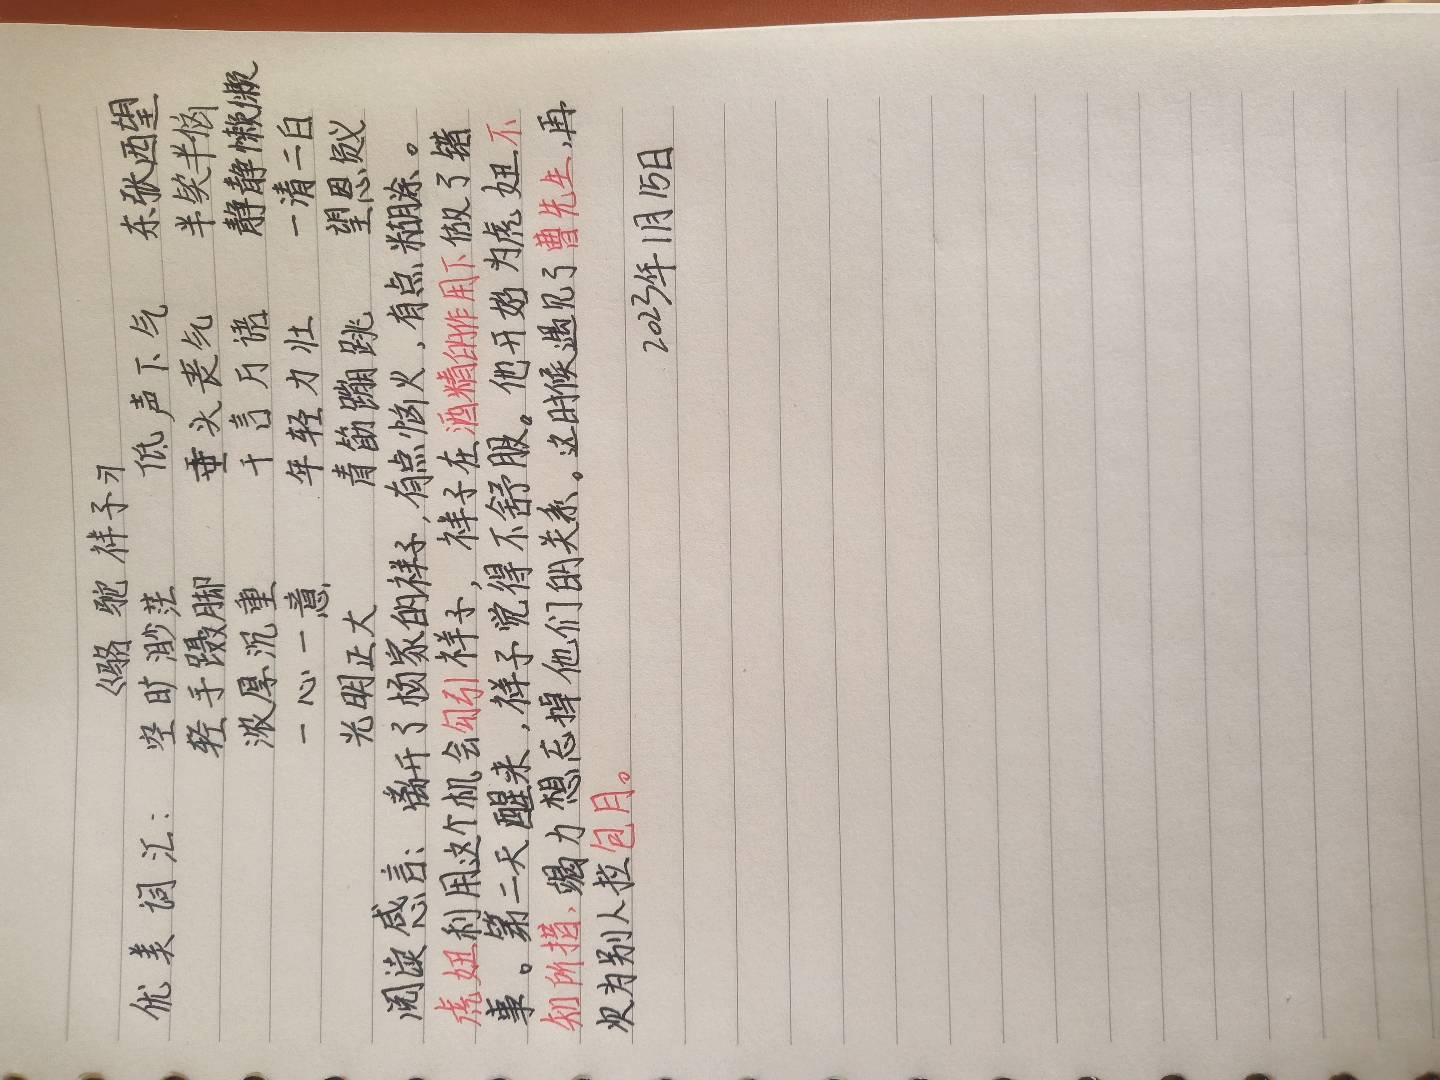 《骆驼祥子》
优美词汇： 空旷渺茫 低声下气 东张西望
轻手蹑脚 垂头丧气 半笑半恼
浓厚沉重 千言万语 静静懒懒
一心一意 年轻力壮 一清二白
光明正大 青筋蹦跳 望恩负义
阅读感言：离开了杨家的祥子，有点恼火，有点糊涂。
虎妞利用这个机会勾引祥子，祥子在酒精的作用下做了错
事。第二天醒来，祥子觉得不舒服。他开始为虎妞不
知所措、竭力想忘掉他们的关系。这时候遇见了曹先生，再
次为别人拉包月。
2023年1月15日